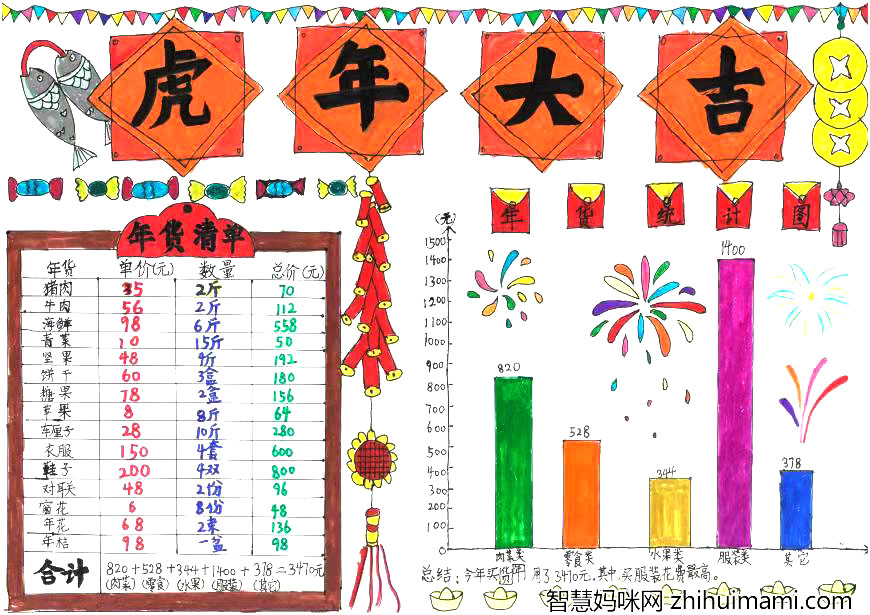 虎年大吉
年货清单
年货 单价(元) 数量 总价(元)
猪肉 35 2斤 70
牛肉 56 2斤 112
海鲜 98 6斤 558
青菜 10 15斤 50
坚果 48 4斤 192
饼干 60 3盒 180
糖果 78 2盒 156
苹果 8 8斤 64
车厘子 28 10斤 280
衣服 150 4套 600
鞋子 200 4双 800
对联 48 2份 96
窗花 6 8份 48
年花 68 2束 136
年桔 98 一盆 98
合计 820+528+344+1400+378=3470元
(肉菜) (零食) (水果) (服装) (其它)
年货统计图
(元)
1500
1400
1300
1200
1100
1000
900
800
700
600
500
400
300
200
100
0
820
528
344
1400
378
肉菜类 零食类 水果类 服装类 其它
总结:今年买货用了3470元,其中,买服装花费最高。
智慧妈咪网 zhihuimami.com